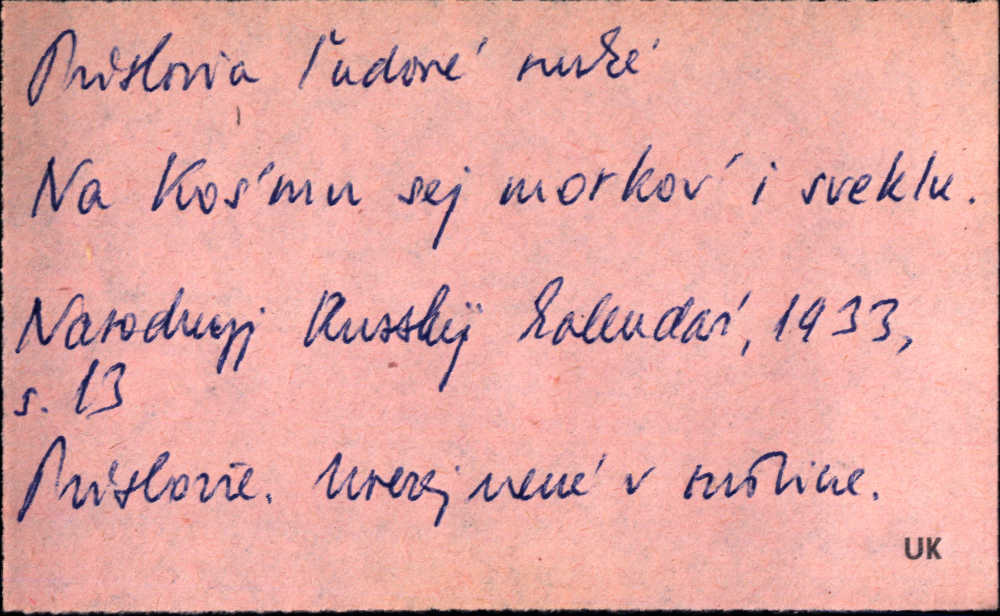 Príslovia ľudové ruské
Na Kośmu sej morkov́ i sveklu.
Narodnyj Russkij kalendaŕ, 1933,
s. 13
Príslovie. Uverejnené v rubrike.
UK